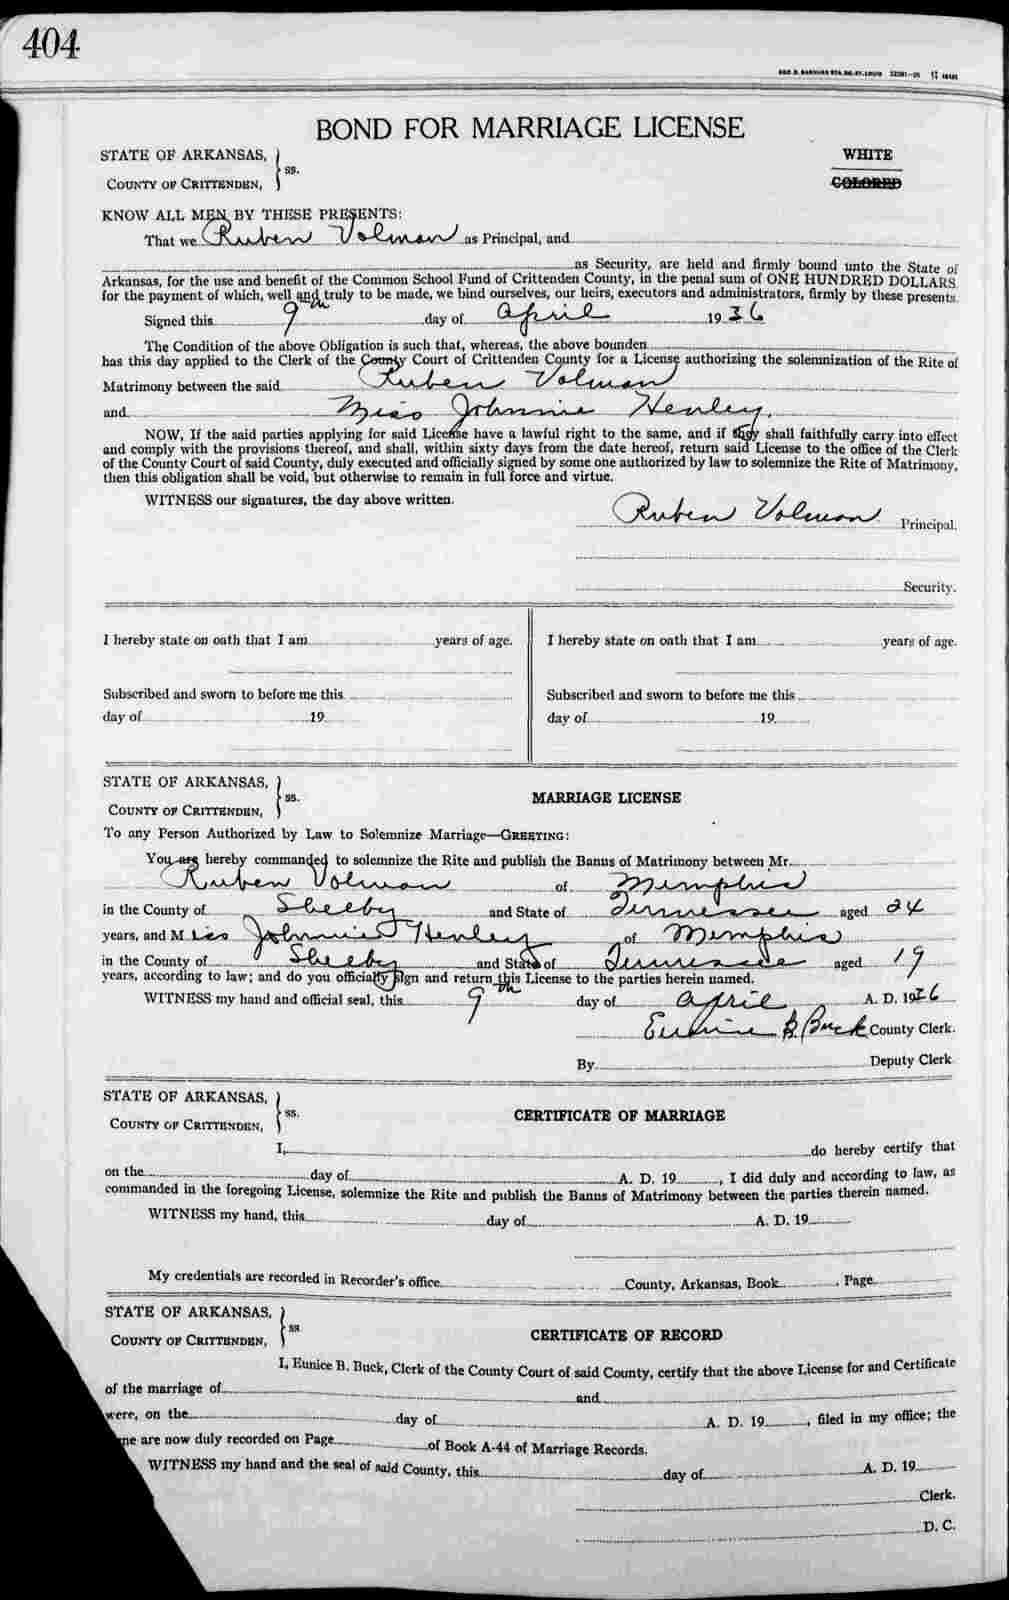 404
BOND FOR MARRIAGE LICENSE
STATE OF ARKANSAS, } ss.
COUNTY OF CRITTENDEN,
WHITE
COLORED
KNOW ALL MEN BY THESE PRESENTS:
That we Ruben Volman as Principal, and
as Security, are held and firmly bound unto the State of
Arkansas, for the use and benefit of the Common School Fund of Crittenden County, in the penal sum of ONE HUNDRED DOLLARS
for the payment of which, well and truly to be made, we bind ourselves, our heirs, executors and administrators, firmly by these presents.
Signed this 9th day of April 1936
The Condition of the above Obligation is such that, whereas, the above bounden
has this day applied to the Clerk of the County Court of Crittenden County for a License authorizing the solemnization of the Rite of
Matrimony between the said Ruben Volman
and Miss Johnnie Henley.
NOW, If the said parties applying for said License have a lawful right to the same, and if they shall faithfully carry into effect
and comply with the provisions thereof, and shall, within sixty days from the date hereof, return said License to the office of the Clerk
of the County Court of said County, duly executed and officially signed by some one authorized by law to solemnize the Rite of Matrimony,
then this obligation shall be void, but otherwise to remain in full force and virtue.
WITNESS our signatures, the day above written.
Ruben Volman Principal.
Security.
I hereby state on oath that I am years of age.
Subscribed and sworn to before me this
day of 19
I hereby state on oath that I am years of age.
Subscribed and sworn to before me this
day of 19
STATE OF ARKANSAS, } ss.
COUNTY OF CRITTENDEN,
MARRIAGE LICENSE
To any Person Authorized by Law to Solemnize Marriage—GREETING:
You are hereby commanded to solemnize the Rite and publish the Banns of Matrimony between Mr.
Ruben Volman of Memphis
in the County of Shelby and State of Tennessee aged 24
years, and Miss Johnnie Henley of Memphis
in the County of Shelby and State of Tennessee aged 19
years, according to law; and do you officially sign and return this License to the parties herein named.
WITNESS my hand and official seal, this 9th day of April A. D. 1936
Eunice B. Buck County Clerk.
By Deputy Clerk
STATE OF ARKANSAS, } ss.
COUNTY OF CRITTENDEN,
CERTIFICATE OF MARRIAGE
I, do hereby certify that
on the day of A. D. 19 , I did duly and according to law, as
commanded in the foregoing License, solemnize the Rite and publish the Banns of Matrimony between the parties therein named.
WITNESS my hand, this day of A. D. 19
My credentials are recorded in Recorder's office County, Arkansas, Book , Page
STATE OF ARKANSAS, } ss
COUNTY OF CRITTENDEN,
CERTIFICATE OF RECORD
I, Eunice B. Buck, Clerk of the County Court of said County, certify that the above License for and Certificate
of the marriage of and
were, on the day of A. D. 19 , filed in my office; the
me are now duly recorded on Page of Book A-44 of Marriage Records.
WITNESS my hand and the seal of said County, this day of A. D. 19
Clerk.
D. C.